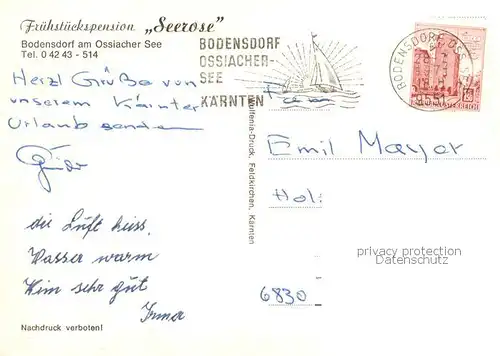 Frühstückspension „Seerose"
Bodensdorf am Ossiacher See
Tel. 0 42 43 - 514
BODENSDORF
OSSIACHER-
SEE
KÄRNTEN
BODENSDORF OSS
Herzl Grüße von
unserem Kärnter
Urlaub senden
die Luft heiss,
Wasser warm
sehr gut
Irma
Nachdruck verboten!
-Druck, Feldkirchen, Kärnten
Emil Mayer
Hol
6830
privacy protection
Datenschutz